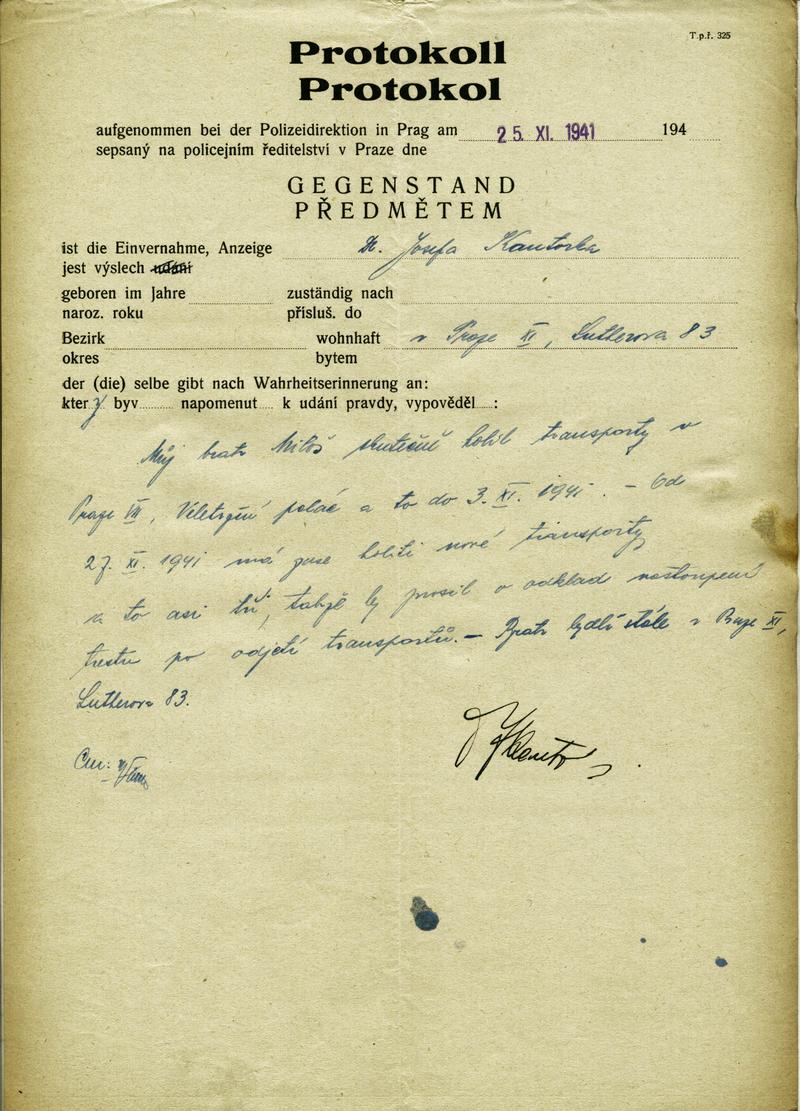 T.p.ř. 325
Protokoll
Protokol
aufgenommen bei der Polizeidirektion in Prag am 25. XI. 1941 194
sepsaný na policejním ředitelství v Praze dne
GEGENSTAND
PŘEDMĚTEM
ist die Einvernahme, Anzeige Dr. Josefa Kantorka
jest výslech udání
geboren im Jahre zuständig nach
naroz. roku přísluš. do
Bezirk wohnhaft v Praze XI, Lutherova 83
okres bytem
der (die) selbe gibt nach Wahrheitserinnerung an:
který byv napomenut k udání pravdy, vypověděl :
Můj bratr Miloš skutečně holil transporty v
Praze VII, Veletržní palác a to do 3. XI. 1941. – Od
27. XI. 1941 má zase holiti nové transporty
a to asi tři, takže by prosil o odklad nastoupení
trestu po odjetí transportů. – Bratr bydlí stále v Praze XI,
Lutherova 83.